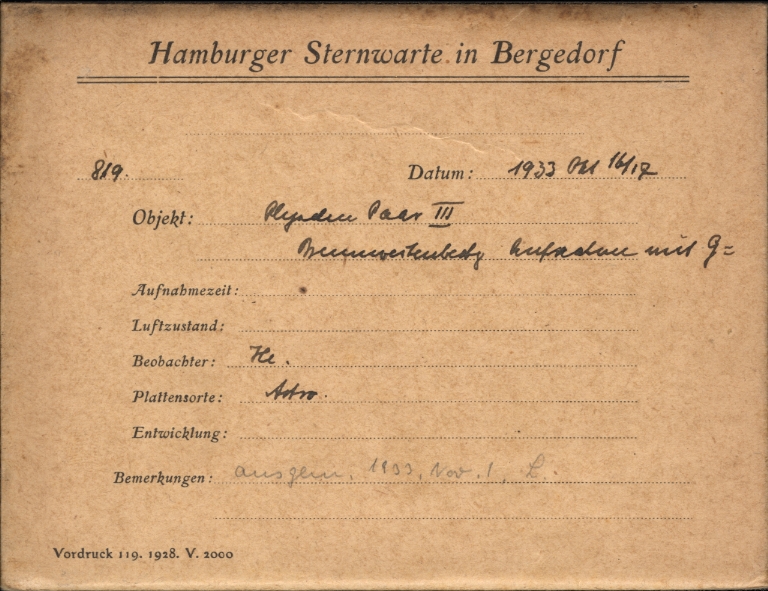 Hamburger Sternwarte in Bergedorf
819. Datum: 1933 Okt 16/17
Objekt: Plejaden Paar III
mit G=
Aufnahmezeit:
Luftzustand:
Beobachter: He.
Plattensorte: Astro.
Entwicklung:
Bemerkungen: ausgem. 1933, Nov. 1, L.
Vordruck 119. 1928. V. 2000